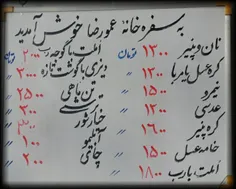 به سفره خانه عمورضا خوش آمدید
نان و پنیر ۱۲۰۰ تومان
کره عسل یا مربا ۱۳۰۰
نیمرو ۱۵۰۰
عدسی ۱۲۰۰
کره پنیر ۱۶۰۰
خامه عسل ۱۵۰۰
املت با رب ۱۸۰۰
املت با گوجه ۲۰۰۰ تومان
دیزی با گوشت تازه ۳۰۰۰
تن ماهی ۲۵۰۰
چای ۲۰۰